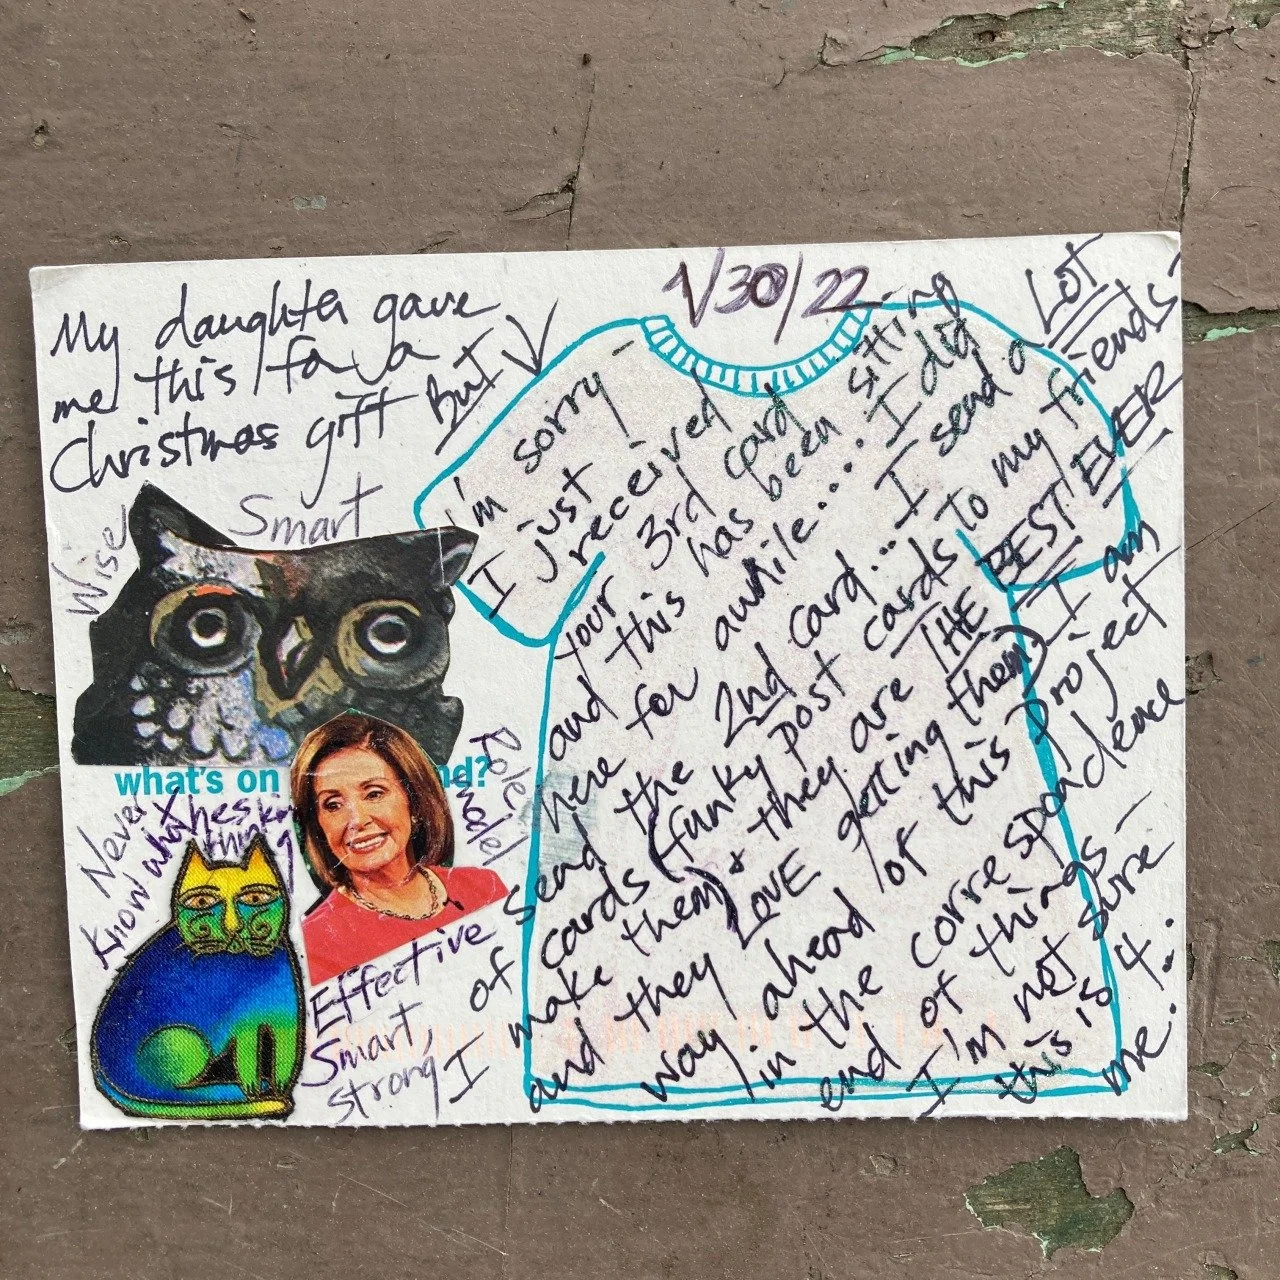 1/30/22
My daughter gave
me this for a
Christmas gift But
Wise
Smart
what's on
nd?
Never
know what he's
thinking
Role
model
Effective
Smart
strong
I'm sorry –
I just received
your 3rd card
and this has been sitting
here for awhile... I did
send the 2nd card... I send a LOT
of cards (funky post cards to my friends –
I make them & they are THE BEST EVER
and they LOVE getting them) I am
way ahead of this project
in the correspondence
end of things –
I'm not sure –
this is 4
me..